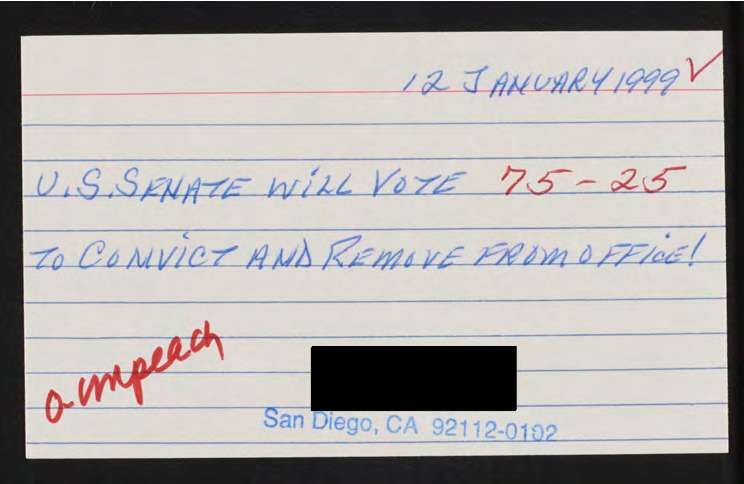 12 JANUARY 1999 ✓
U.S. SENATE WILL VOTE 75-25
TO CONVICT AND REMOVE FROM OFFICE!
a-impeach
San Diego, CA 92112-0102